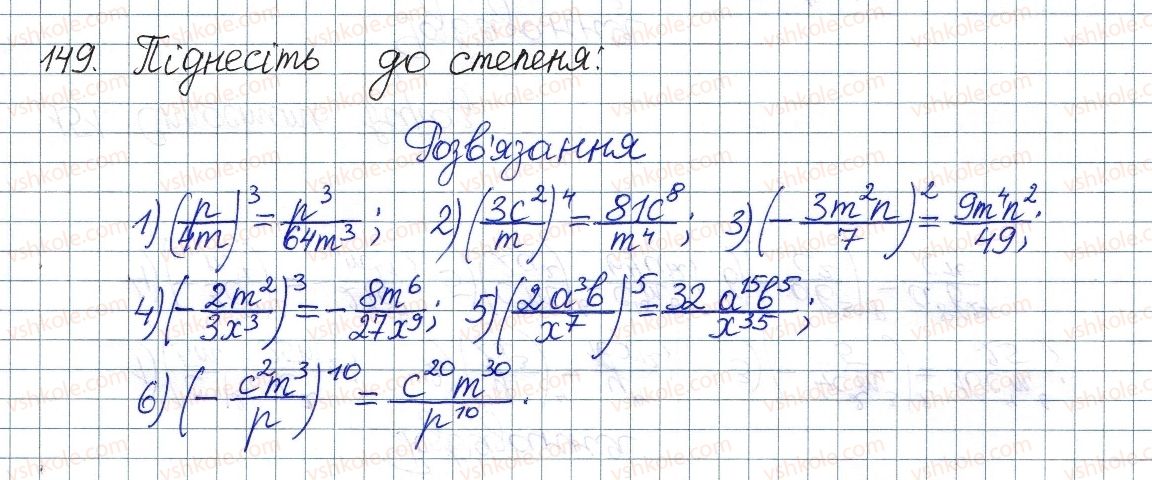 149. Піднесіть до степеня:
Розв'язання
1) (p/4m)^3 = p^3/64m^3; 2) (3c^2/m)^4 = 81c^8/m^4; 3) (-3m^2n/7)^2 = 9m^4n^2/49;
4) (-2m^2/3x^3)^3 = -8m^6/27x^9; 5) (2a^3b/x^7)^5 = 32a^15b^5/x^35;
6) (-c^2m^3/p)^10 = c^20m^30/p^10.